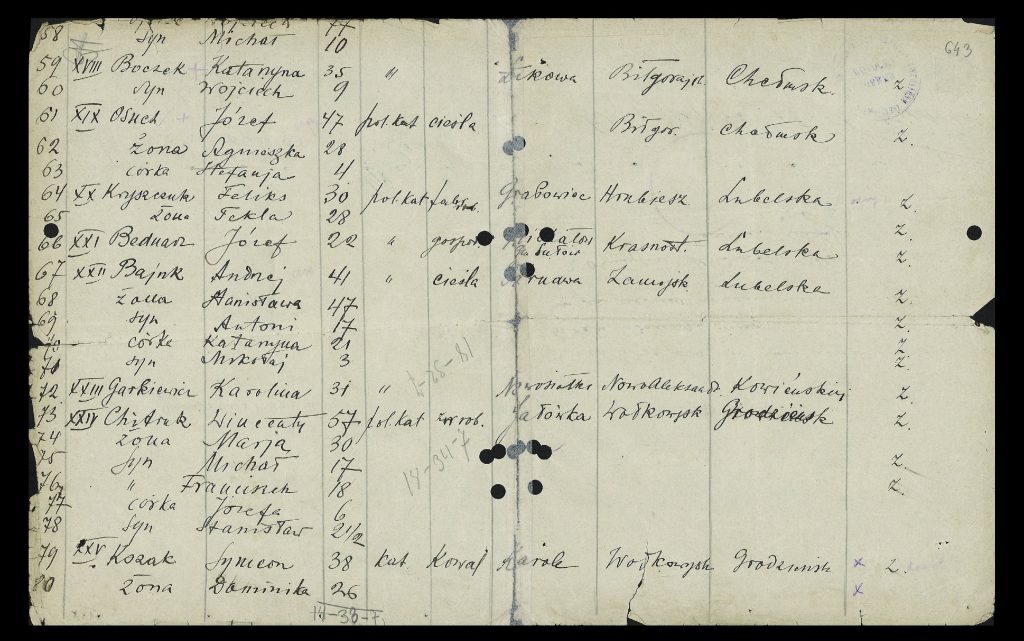 643
58 syn Michał 10
59 XVIII Boczek Katarzyna 35 " Łukowa Biłgorajsk. Chełmsk. Z
60 syn Wojciech 9
61 XIX Osuch Józef 47 pol. kat cieśla Biłgor. Chełmsk Z.
62 żona Agnieszka 28
63 córka Stefanja 4
64 XX Kryszczuk Feliks 30 pol kat Grabowiec Hrubiesz Lubelska Z.
65 żona Tekla 28 Z.
66 XXI Bednarz Józef 22 " gospod. Krasnost. Lubelska Z.
67 XXII Bajuk Andrzej 41 " cieśla Zamojsk Lubelska
68 żona Stanisława 47 Z.
69 syn Antoni 17 Z.
70 córka Katarzyna 21 Z
71 syn Mikołaj 3 Z
72 XXIII Garkiewicz Karolina 31 " Nowoaleksand. Kowieńskiej Z
73 XXIV Wincenty 57 pol. kat Jałówka Wołkowysk Grodzieńsk Z.
74 żona Marja 30
75 syn Michał 17 Z.
76 " Franciszek 18 Z.
77 córka Józefa 6
78 syn Stanisław 2 1/2
79 XXV Koszak Symeon 38 kat. Kowal Wołkowysk Grodzieńsk x Z.
80 żona Dominika 26 x
14-38-7
14-34-7